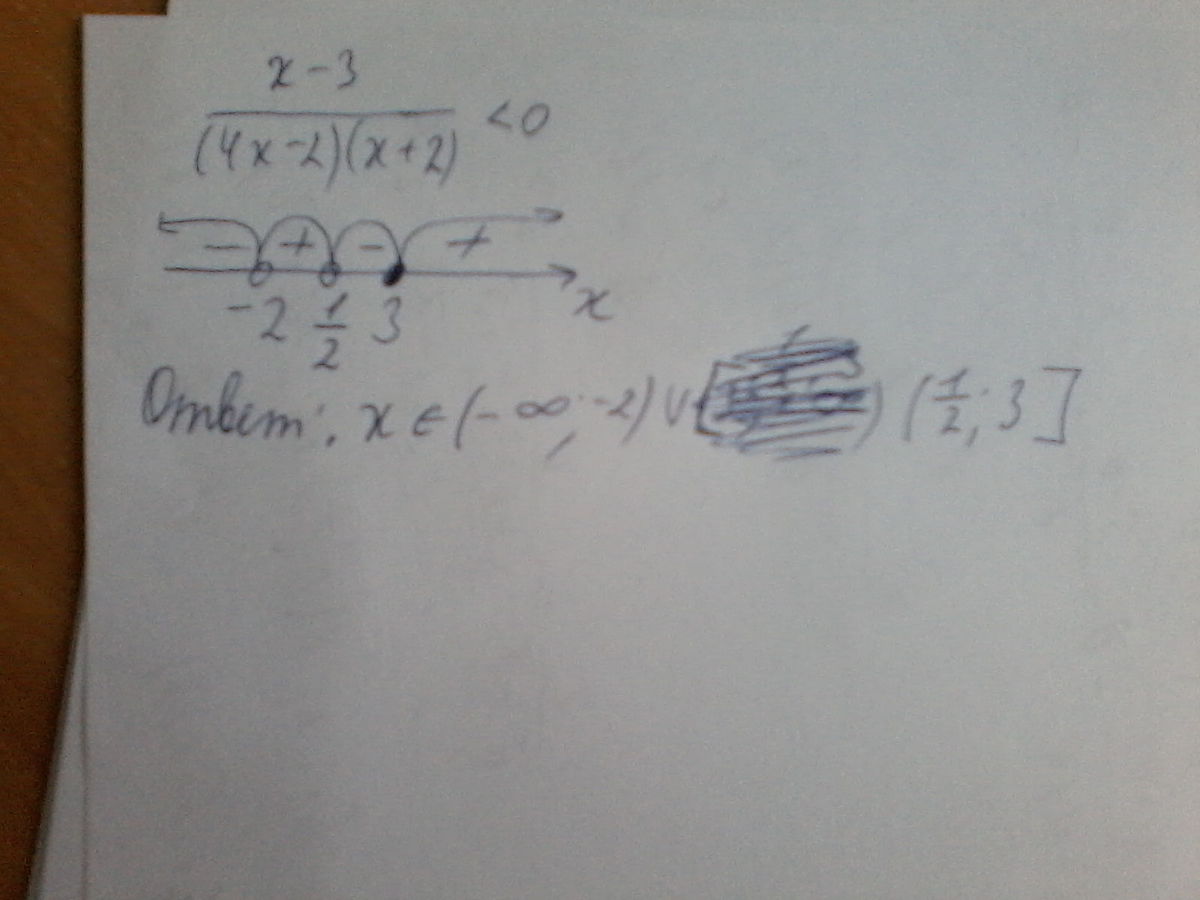 x - 3
(4x-2)(x+2) <0
- + - +
-2 1/2 3 x
Ответ: x ∈ (-∞; -2) ∪ (1/2; 3]